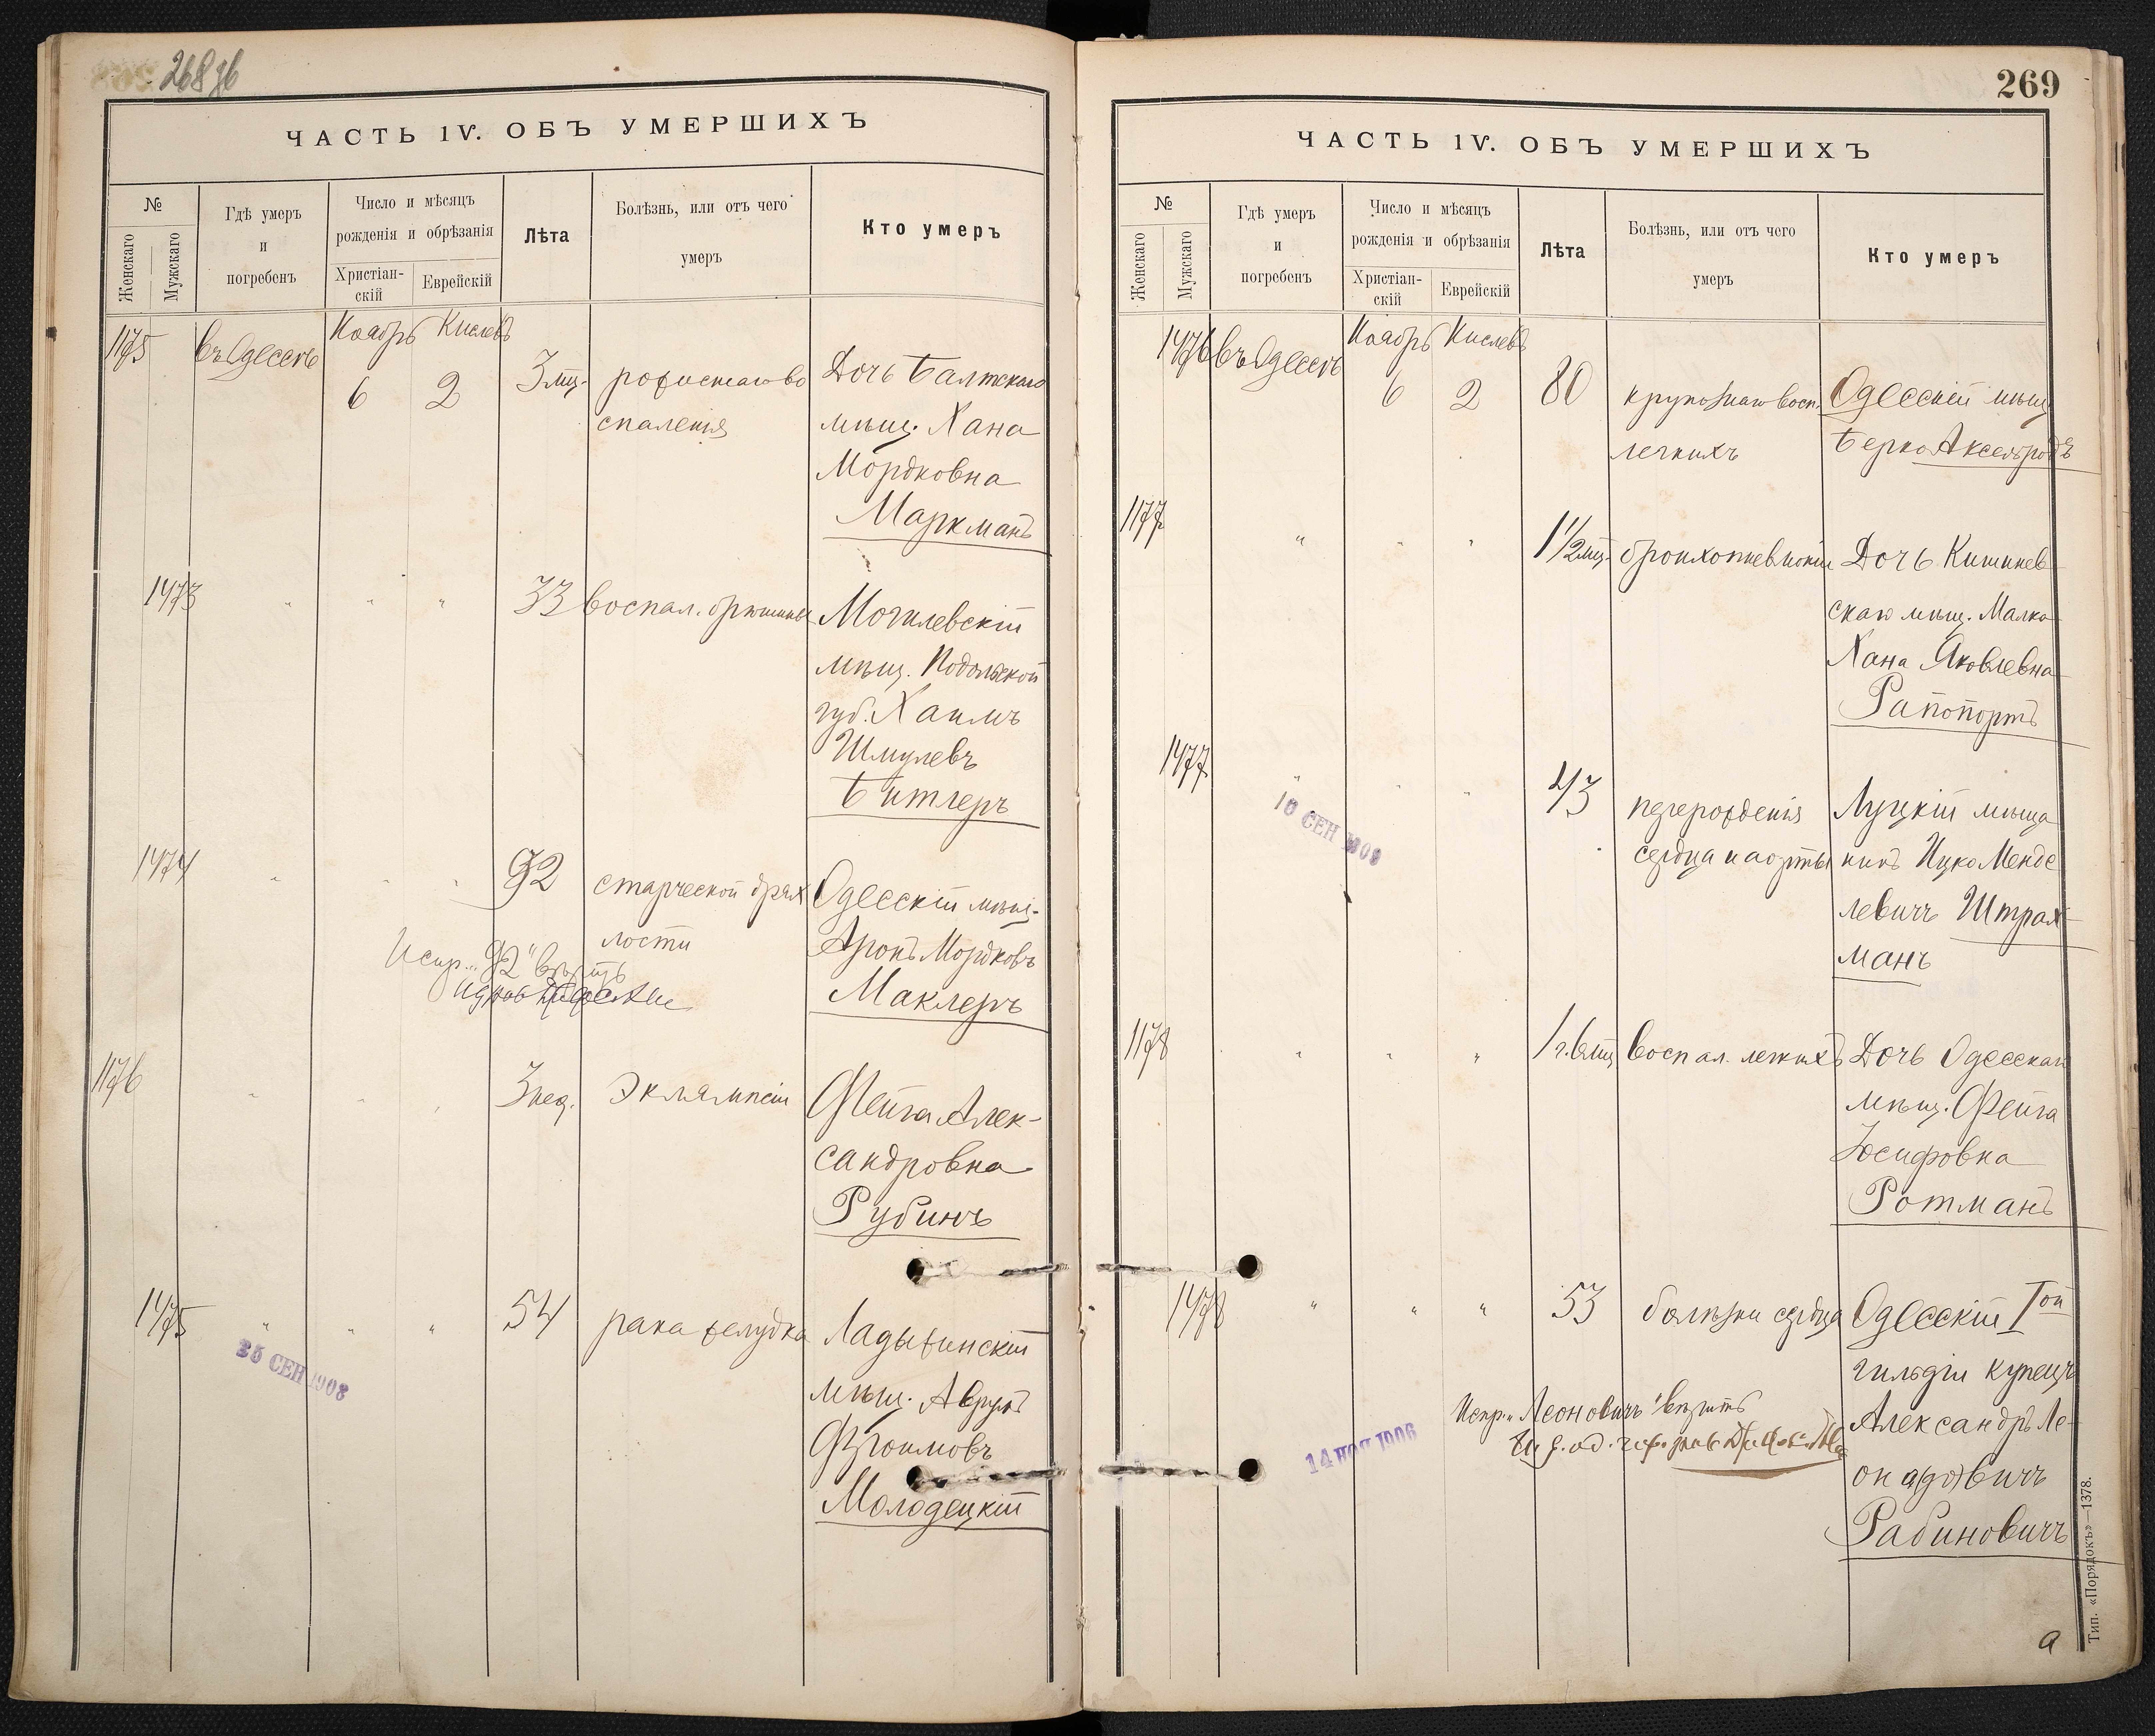 268 об
ЧАСТЬ IV. ОБЪ УМЕРШИХЪ
№
Женскаго
Мужскаго
Гдѣ умеръ
и
погребенъ
Число и мѣсяцъ
рожденія и обрѣзанія
Христіан-
скій
Еврейскій
Лѣта
Болѣзнь, или отъ чего
умеръ
Кто умеръ
1175
въ Одессѣ
Ноябрь Кислевъ
6 2
3 мц.
рожистаго во
спаленія
Дочь Балтскаго
мѣщ. Хана
Мордковна
Маркманъ
1473
" " "
33
воспал. брюшины
Могилевскій
мѣщ. Подольской
губ. Хаимъ
Шмулевъ
Битлеръ
1474
" " "
92
старческой дрях
лости
Одесскій мѣщ.
Аронъ Мордковъ
Маклеръ
Испр. "92" вѣрить
1176
" " "
3 нед.
Эклямпсіи
Фейга Алек-
сандровна
Рубинъ
1475
" " "
54
рака желудка
Ладыжинскій
мѣщ. Аврумъ
Фроимовъ
Молодецкій
25 СЕН 1908
269
ЧАСТЬ IV. ОБЪ УМЕРШИХЪ
№
Женскаго
Мужскаго
Гдѣ умеръ
и
погребенъ
Число и мѣсяцъ
рожденія и обрѣзанія
Христіан-
скій
Еврейскій
Лѣта
Болѣзнь, или отъ чего
умеръ
Кто умеръ
1476
въ Одессѣ
Ноябрь Кислевъ
6 2
80
крупознаго восп.
легкихъ
Одесскій мѣщ.
Берко Аксельродъ
1177
" " "
1 1/2 мц.
бронхопневмоніи
Дочь Кишинев
скаго мѣщ. Малка
Хана Яковлевна
Рапопортъ
1477
" " "
43
перерожденія
сердца и аорты
Луцкій мѣща
нинъ Ицко Менде
левичъ Штрах
манъ
10 СЕН 1908
1178
" " "
1 г. 6 мц.
воспал. легкихъ
Дочь Одесскаго
мѣщ. Фейга
Іосифовна
Ротманъ
1478
" " "
53
болѣзни сердца
Одесскій I ой
гильдіи купецъ
Александръ Ле-
оновичъ
Рабиновичъ
Испр. "Леоновичъ" вѣрить
14 НОЯ 1906
Тип. «Порядокъ»—1378.
а